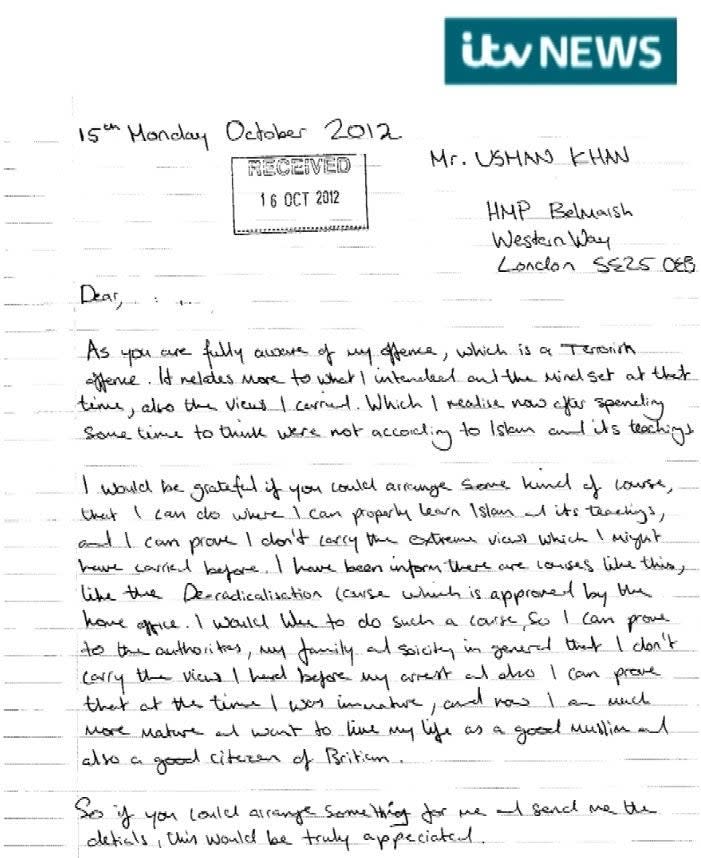 itv NEWS
15th Monday October 2012
RECEIVED
16 OCT 2012
Mr. USMAN KHAN
HMP Belmarsh
Western Way
London SE25 0EB
Dear,
As you are fully aware of my offence, which is a Terrorist
offence. It relates more to what I intended and the mind set at that
time, also the views I carried. Which I realise now after spending
some time to think were not according to Islam and its teachings
I would be grateful if you could arrange some kind of course,
that I can do where I can properly learn Islam and its teachings,
and I can prove I don't carry the extreme views which I might
have carried before. I have been inform there are courses like this,
like the De-radicalisation course which is approved by the
home office. I would like to do such a course, so I can prove
to the authorities, my family and soicity in general that I don't
carry the views I had before my arrest and also I can prove
that at the time I was immature, and now I am much
more mature and want to live my life as a good muslim and
also a good citezen of Britian.
So if you could arrange something for me and send me the
detials, this would be truly appeciated.